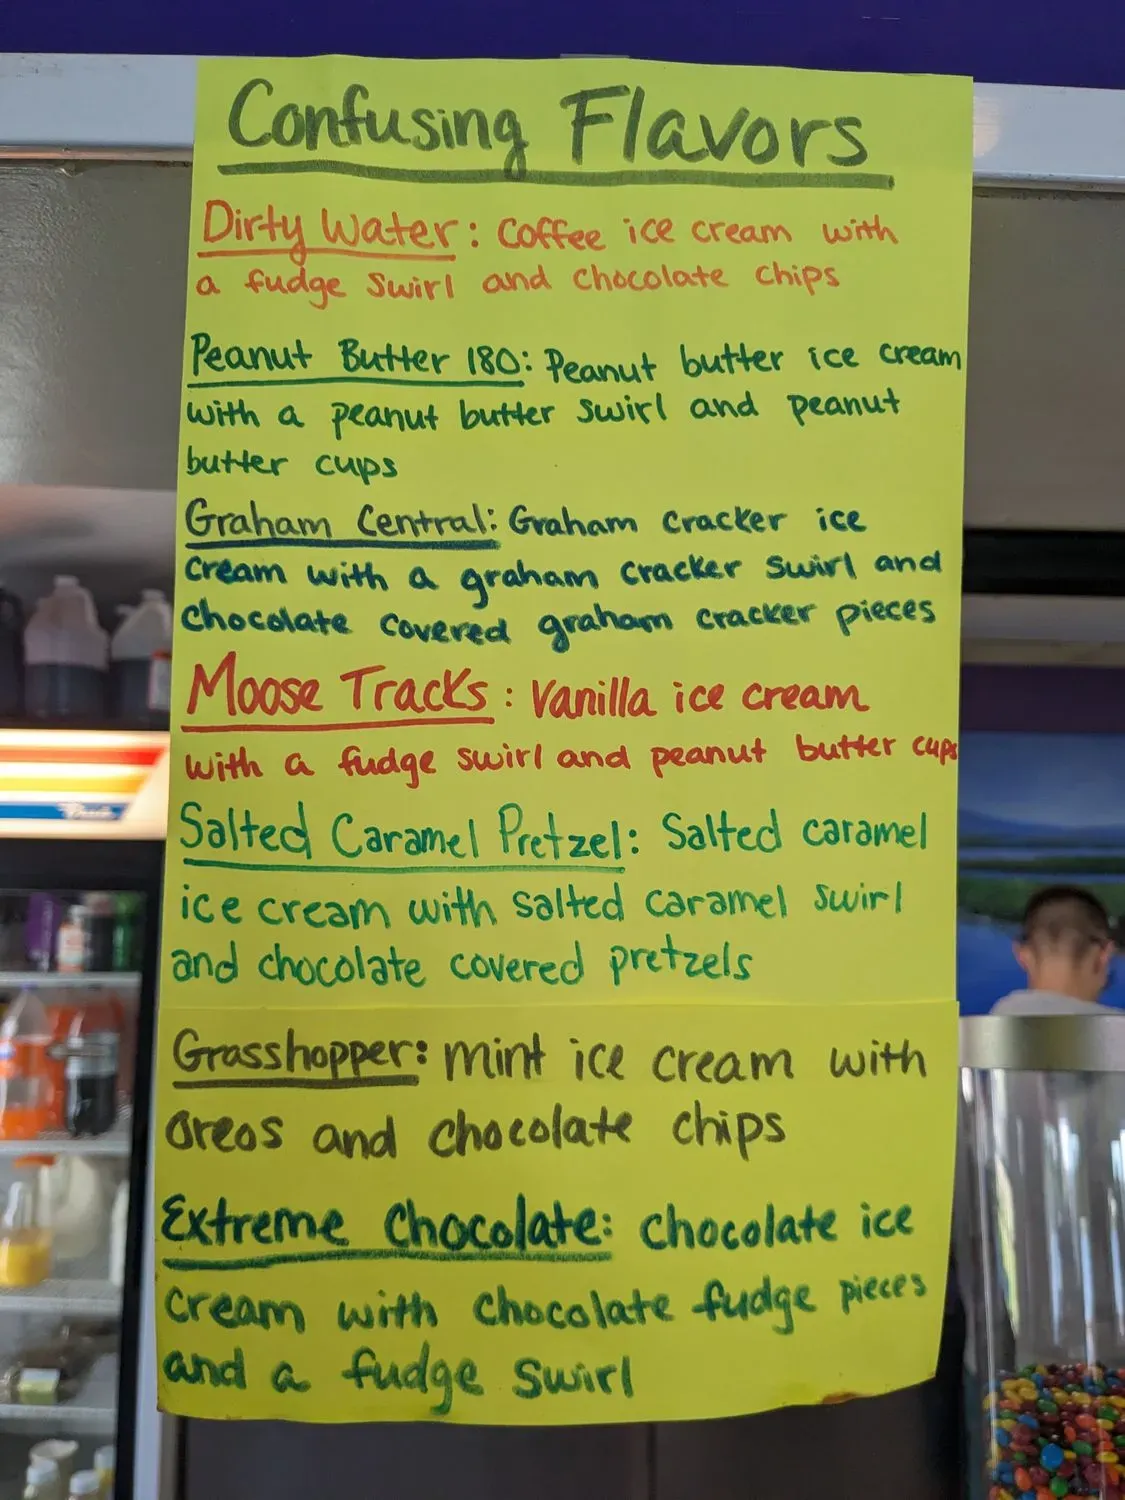 Confusing Flavors
Dirty Water: Coffee ice cream with
a fudge swirl and chocolate chips
Peanut Butter 180: Peanut butter ice cream
with a peanut butter swirl and peanut
butter cups
Graham Central: Graham cracker ice
cream with a graham cracker swirl and
chocolate covered graham cracker pieces
Moose Tracks: Vanilla ice cream
with a fudge swirl and peanut butter cups
Salted Caramel Pretzel: Salted caramel
ice cream with salted caramel swirl
and chocolate covered pretzels
Grasshopper: Mint ice cream with
oreos and chocolate chips
Extreme Chocolate: chocolate ice
cream with chocolate fudge pieces
and a fudge swirl